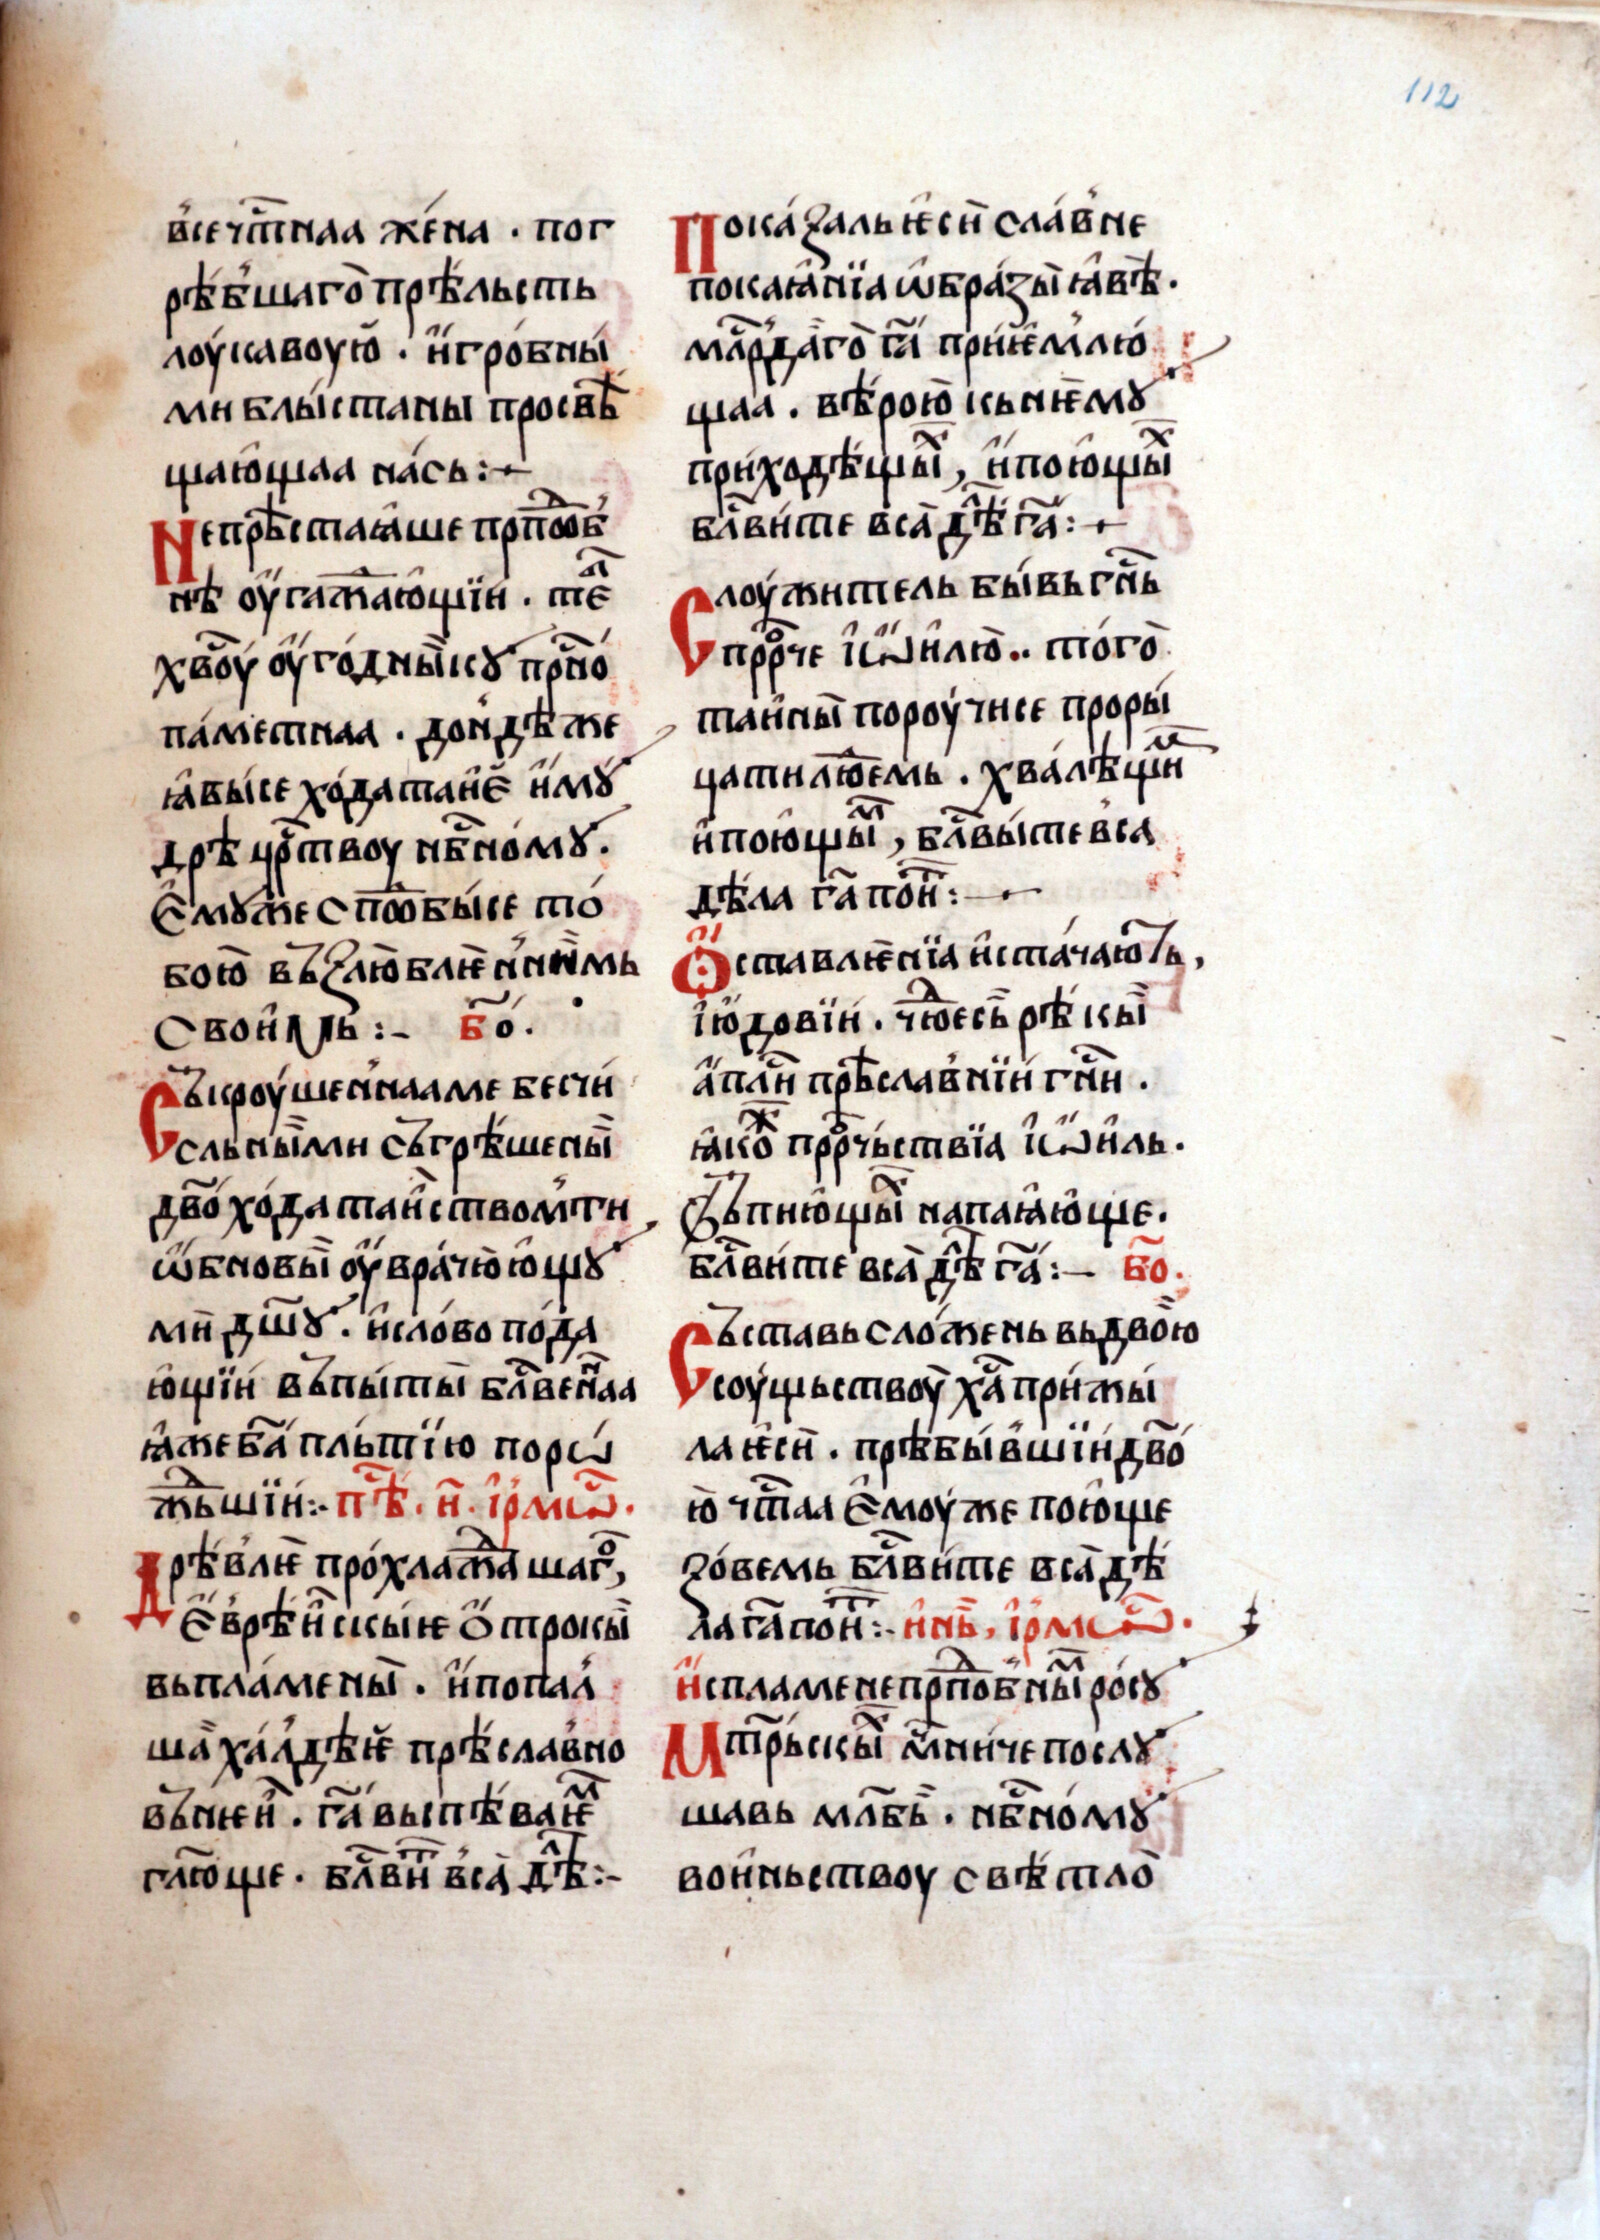 112
в̓сечт̃наа же́на · пог
рѣ́бшаго̀ прѣ́льсть
лоу́кавоую̀ · и҆гро́бны́
ми блы́станы просвѣ̃
щаю҆щаа на́сь :~
Непрѣ̃стаꙗ҆ше прпⷣо̃б
нѣ оу҆гаⷤаю҆щїи · тѣⷧ
хво̃у́ оу҆го́дны̀кꙋ прⷭ҇но́
па́метнаа · дои́дѣже
ꙗ҆вы́се хо́датаи҆е и҆мꙋ́
дрѣ црⷭ҇твоу нбⷭ҇но́мꙋ ·
Е҆мꙋже спⷣо̃бы́се то́
бою̀ въꙁлю̀блѥн̓ни̏мь
свои҆мь :~ бо̃ ·
Съкроу́шен̓нааме бесчи́
сльны̀ми съгрѣ́шены̀
дво̃ хо́датаи҆ство́мти
ѡ҆бновы̀ оу҆вра́чю̀ю҆щꙋ
ми̏ дш҃ꙋ · и҆сло́во по́да
ю҆щїи́ въпы́ты̀ блⷭ҇венⷩ҇аа
ꙗ҆жеба̃ пль́тїю порѡ́
жⷣьшїи :~ пѣ̃ · и҃ · і҆рмⷭ҇ѡ ·
Дрѣ́влѥ̀ про́хлаⷤⷣашагⷪ҇,
Е҆врѣи҆скы́ѥ ѻ҆трокы̀
вьпла́мены̀ · и҆попал̓
ша̏ ха́л̓дѣѥ прѣ́слав̓но
въ́нѥи҆ · га̃ выпѣ́ваѥⷨ
гл҃юще · блⷭ҇виⷮ в̓са̀ дѣⷧ :~
Пока́ꙁальѥ҆си̏ сла́в̓не
покаꙗ҆нїа ѡ҆бра́ꙁы̀ ꙗ҆вѣ̀ ·
млⷭ҇рда̏го̀ га̃ прїѥ́м̓лю
щаа · вѣ́рою̀ кьнѥ̀мꙋ
приходѣщыⷯ, и҆пою҆щыⷯ
блⷭ҇ви́те вса̀ дѣⷧ га̃ :~
Слоужитель бы́вьгнⷭ҇ь
прⷪ҇рче і҆ѡ҆и҆лю̀ ·· то́го̀
таи҆ны̀ пороу́чнсе проры́
цатилю́демь · хва́лѣщиⷨ
и҆пою҆щыⷨ, блⷭ҇вы́тевса
дѣ́ла га̃ поиⷮ :~
Ѻ҆ставлѥнїа и҆ста́чаюⷮъ,
і҆ю҆довїи́ · чюⷣесь̀ рѣ́кы̀
а҆плⷭ҇и прѣ̃слав̓нїи́ гнⷭ҇и ·
ꙗ҆коⷤ прⷪ҇рчьствїа і҆ѡ҆и҆ль ·
ѿъпию҆щыⷯ напаꙗ҆ю҆ще ·
блⷭ҇ви́те вса̀ дѣⷧ га̃ :~ бо̃ ·
Съставь сло́жень вьдво̏ю
соу́щьствоу̀ ха̃ при́жы́
лаѥ҆си̏ · прѣбы́в̓шїи́дво̃
ю̀ чтⷭ҇аа Е҆моуже пою҆ще
ꙁо́вемь блⷭ҇ви́те вса̀дѣ
ла га̃ поиⷮ :~ и҆нь̏, і҆рмⷭ҇ѡ ·
И҆спламенепрпⷣоб̓ныⷨ ро́сꙋ
Мтⷭ҇рьскыⷯ мⷱ҇ничепослꙋ
шавь млⷭ҇бь̀ · нбⷭ҇но́мꙋ
вои҆ньствоу свѣ́тло̀